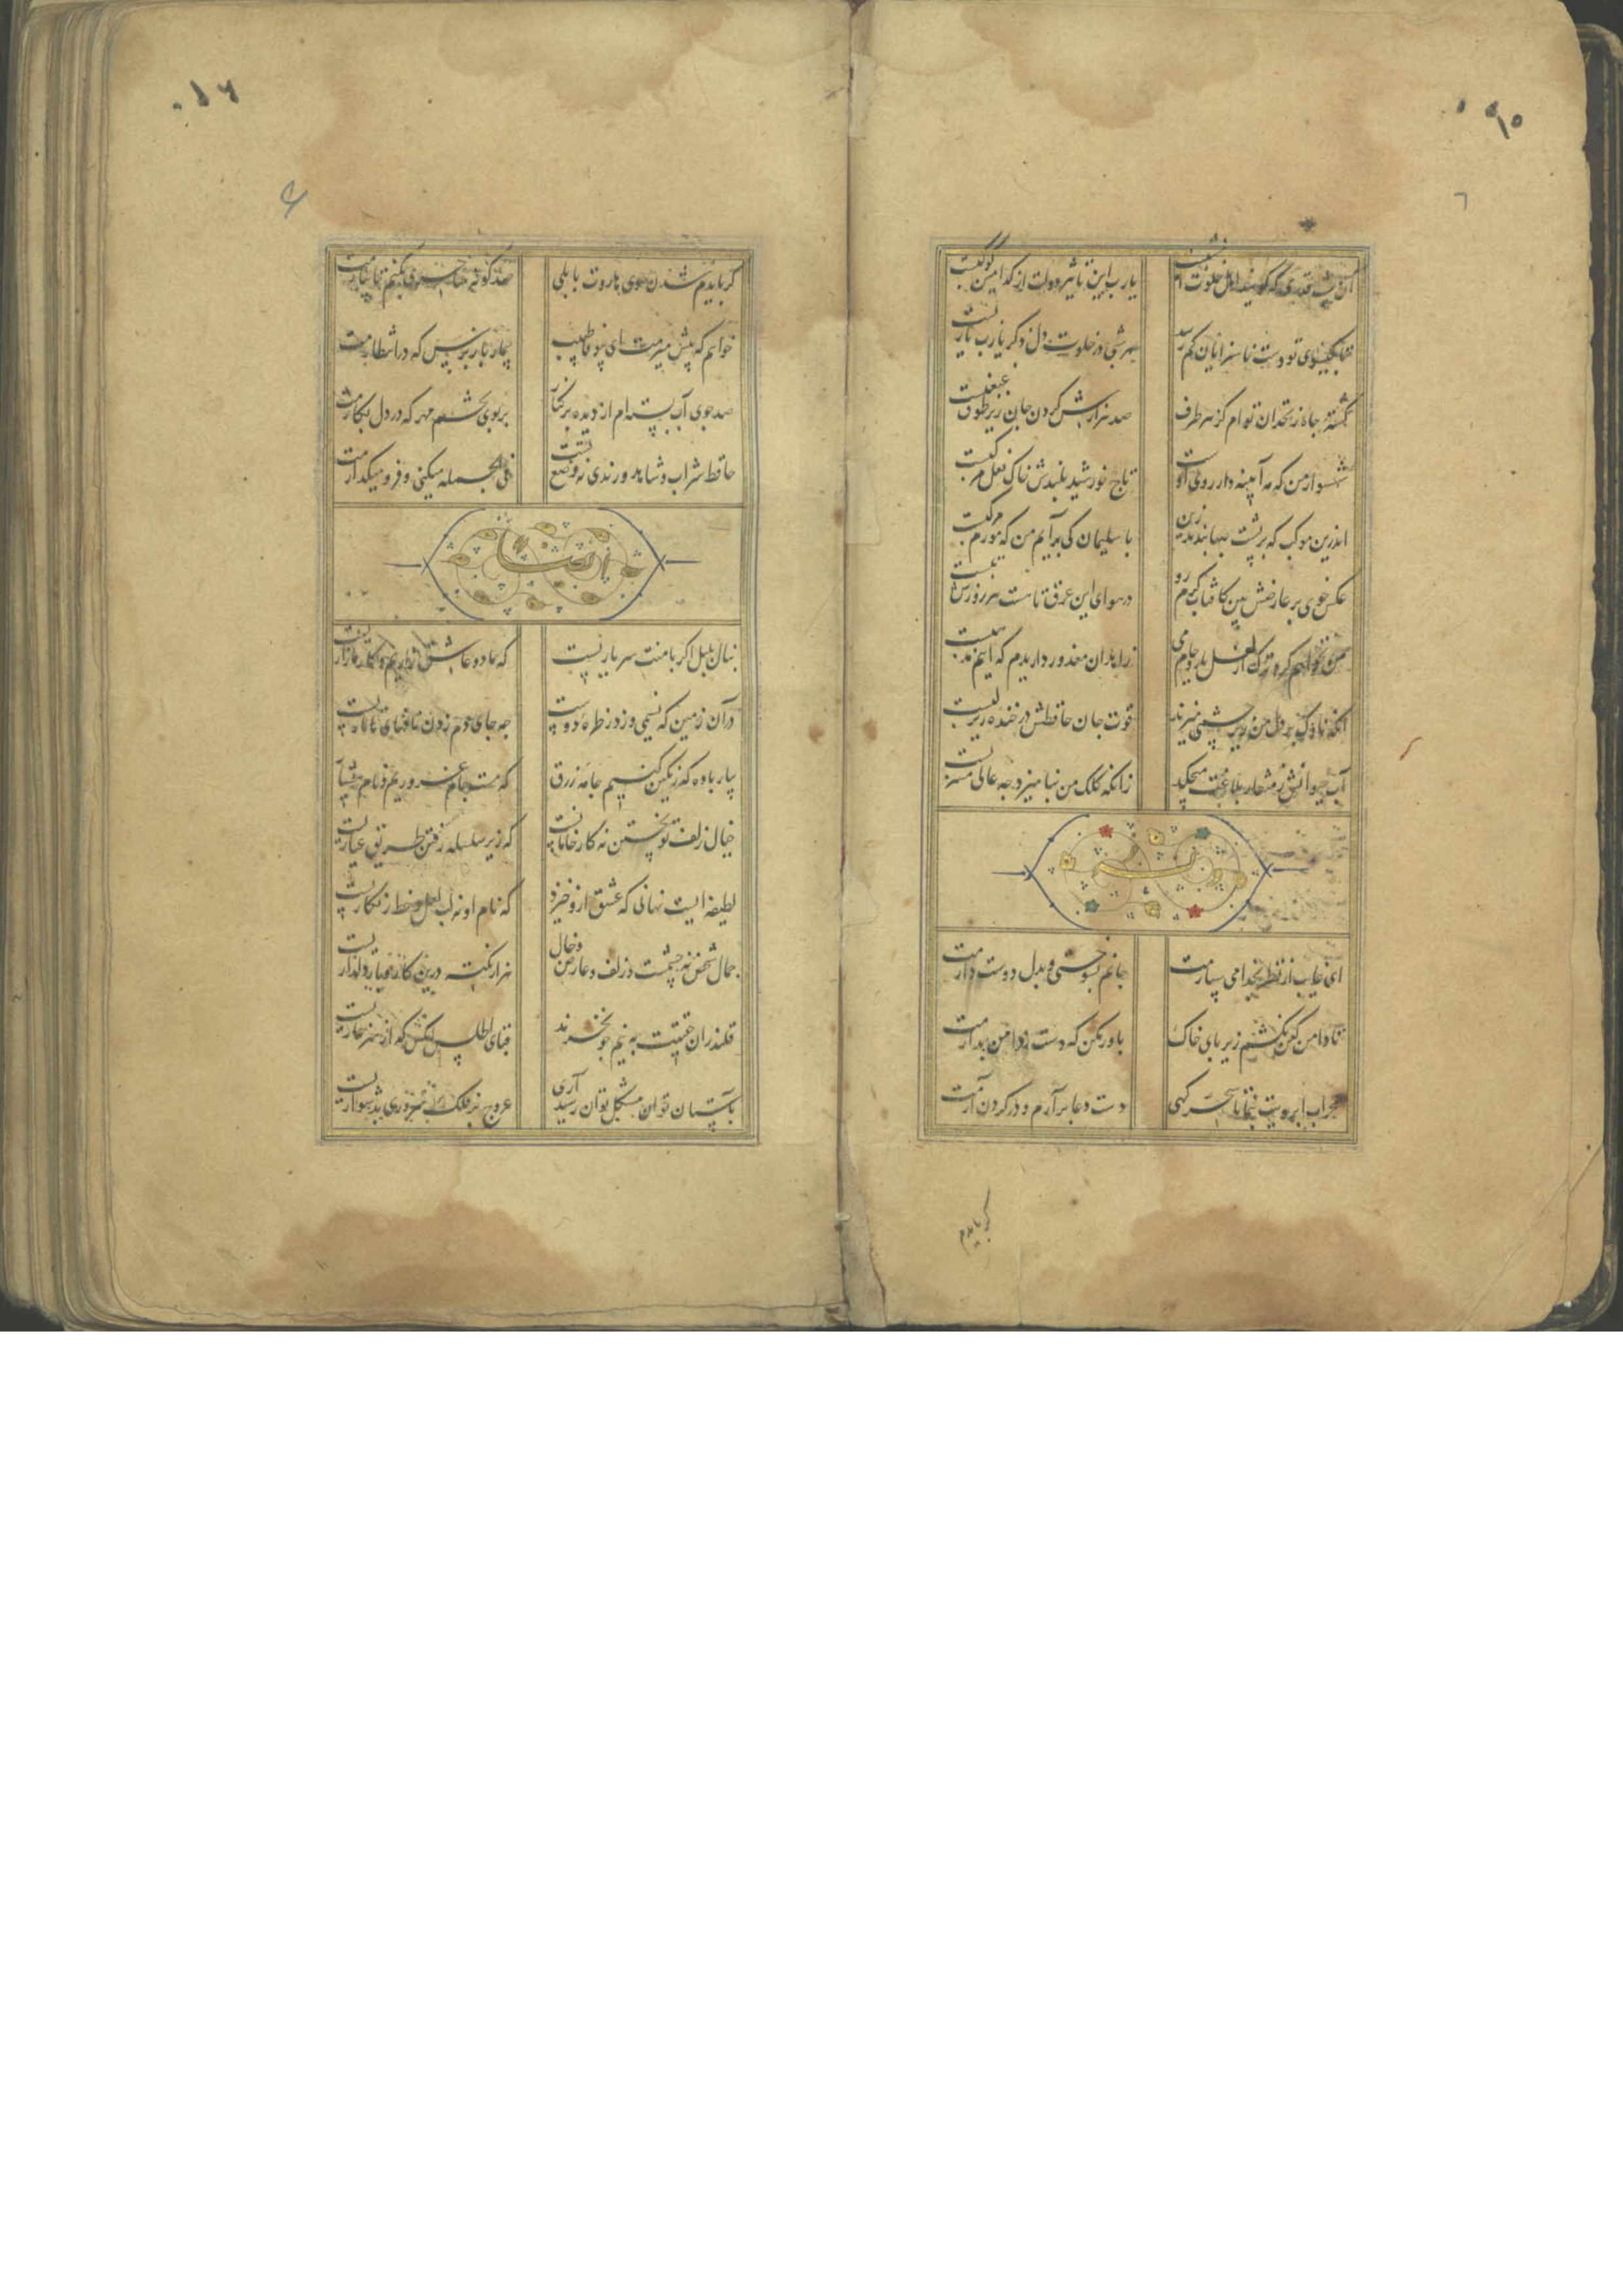 آن شب قدری که گویند اهل خلوت امشبست یارب این تاثیر دولت از کدامین کوکبست
تا بگیسوی تو دست ناسزایان کم رسد هر شبی در خلوت دل ذکر یارب یاربست
کشته چاه زنخدان توام کز هر طرف صد هزارش گردن جان زیر طوق غبغبست
شهسوار من که مه آیینه دار روی اوست تاج خورشید بلندش خاک نعل مرکبست
اندرین موکب که بر پشت صبا بندند زین با سلیمان کی برآیم من که مورم مرکبست
عکس خوی بر عارضش بین کافتاب گرم رو در هوای این عرق تا هست هر روزش تبست
من نخواهم کرد ترک لعل یار و جام می زاهدان معذور داریدم که اینم مذهبست
آنکه ناوک بر دل من زیر چشمی میزند قوت جان حافظش در خنده زیر لبست
آب حیوانش ز منقار بلاغت میچکد زانکه کلک من نیامیزد چه عالی مشربست
ای غایب از نظر بخدا می سپارمت جانم بسوختی و بدل دوست دارمت
تا دامن کفن نکشم زیر پای خاک باور مکن که دست ز دامن بدارمت
محراب ابرویت بنما تا سحرگهی دست دعا برآرم و در گردن آرمت
گر بایدم
گر بایدم شدن سوی هاروت بابلی صد گونه جادویی بکنم تا بیارمت
خواهم که پیش میرمت ای بیوفا طبیب بیمار باز پرس که در انتظارمت
صد جوی آب بسته ام از دیده بر کنار بر بوی تخم مهر که در دل بکارمت
حافظ شراب و شاهد و رندی نه وضع تست فی الجمله میکنی و فرو میگذارمت
بنال بلبل اگر با منت سر یاریست که ما دو عاشق زاریم و کار ما زاریست
در آن زمین که نسیمی وزد ز طره دوست چه جای دم زدن نافهای تاتاریست
بیار باده که رنگین کنیم جامه زرق که مست جام غروریم و نام هشیاریست
خیال زلف تو پختن نه کار خامانست که زیر سلسله رفتن طریق عیاریست
لطیفه ایست نهانی که عشق ازو خیزد که نام او نه لب لعل و خط زنگاریست
جمال شخص نه چشمست و زلف و عارض و خال هزار نکته درین کار و بار دلداریست
قلندران حقیقت به نیم جو نخرند قبای اطلس آنکس که از هنر عاریست
بآستان تو مشکل توان رسید آری عروج بر فلک سروری بدشواریست